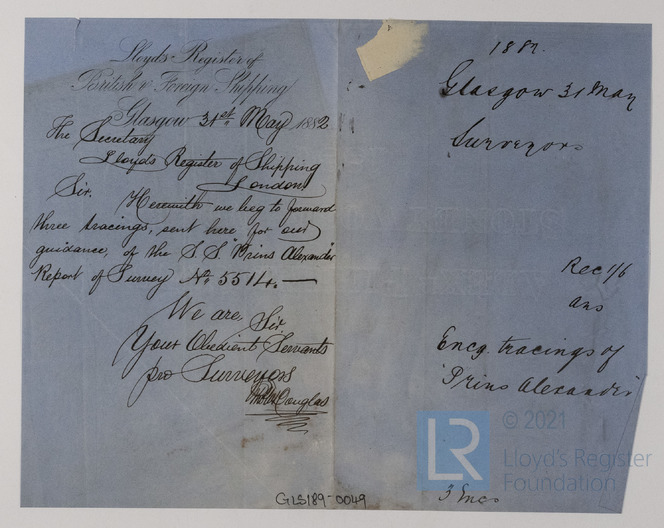 Lloyds Register of
British & Foreign Shipping
Glasgow 31st May 1882
The Secretary
Lloyds Register of Shipping
London
Sir.
Herewith we beg to forward
three tracings, sent here for our
guidance, of the S.S. "Prins Alexander"
Report of Survey No 5514. —
We are, Sir,
Your Obedient Servants
pro Surveyors
Douglas
1882.
Glasgow 31 May
Surveyors
Rec 1/6
ans
Encg. tracings of
'Prins Alexander'
3 Encs
GLS189-0049
LR
© 2021
Lloyd's Register
Foundation